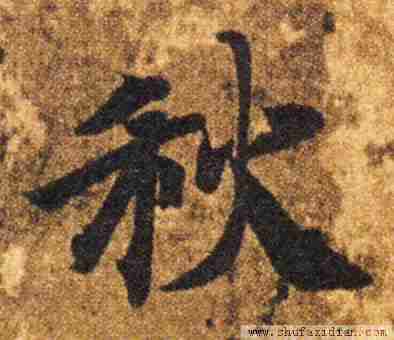 秋
www.shufazidian.com